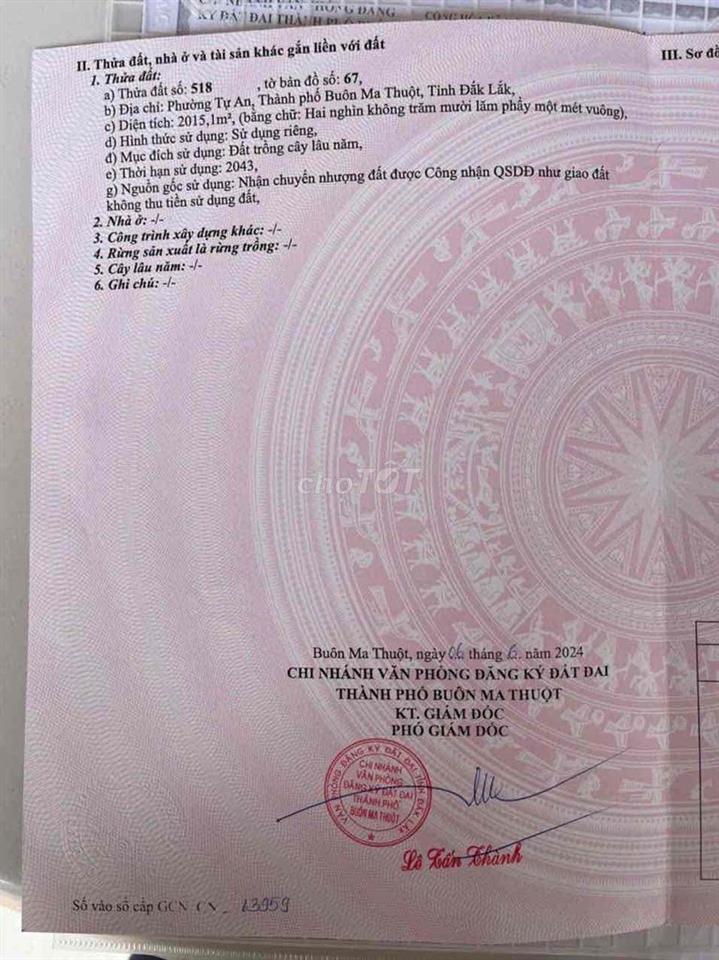 KÝ ĐẤT ĐAI THÀNH PHỐ
II. Thửa đất, nhà ở và tài sản khác gắn liền với đất
III. Sơ đồ
1. Thửa đất:
a) Thửa đất số: 518 , tờ bản đồ số: 67,
b) Địa chỉ: Phường Tự An, Thành phố Buôn Ma Thuột, Tỉnh Đắk Lắk,
c) Diện tích: 2015,1m², (bằng chữ: Hai nghìn không trăm mười lăm phẩy một mét vuông),
d) Hình thức sử dụng: Sử dụng riêng,
đ) Mục đích sử dụng: Đất trồng cây lâu năm,
e) Thời hạn sử dụng: 2043,
g) Nguồn gốc sử dụng: Nhận chuyển nhượng đất được Công nhận QSDĐ như giao đất
không thu tiền sử dụng đất,
2. Nhà ở: -/-
3. Công trình xây dựng khác: -/-
4. Rừng sản xuất là rừng trồng: -/-
5. Cây lâu năm: -/-
6. Ghi chú: -/-
choTỐT
Buôn Ma Thuột, ngày 06 tháng 6. năm 2024
CHI NHÁNH VĂN PHÒNG ĐĂNG KÝ ĐẤT ĐAI
THÀNH PHỐ BUÔN MA THUỘT
KT. GIÁM ĐỐC
PHÓ GIÁM ĐỐC
VĂN PHÒNG ĐĂNG KÝ ĐẤT ĐAI TỈNH ĐẮK LẮK
CHI NHÁNH
VĂN PHÒNG
ĐĂNG KÝ ĐẤT ĐAI
THÀNH PHỐ
BUÔN MA THUỘT
Lê Tấn Thành
Số vào sổ cấp GCN: CN_ 13959